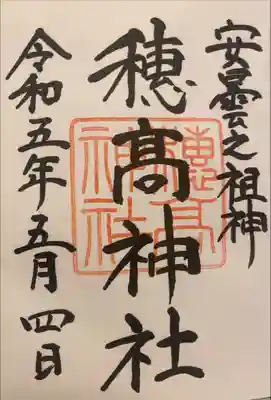 安曇之祖神
穂髙神社
令和五年五月四日
穂高神社